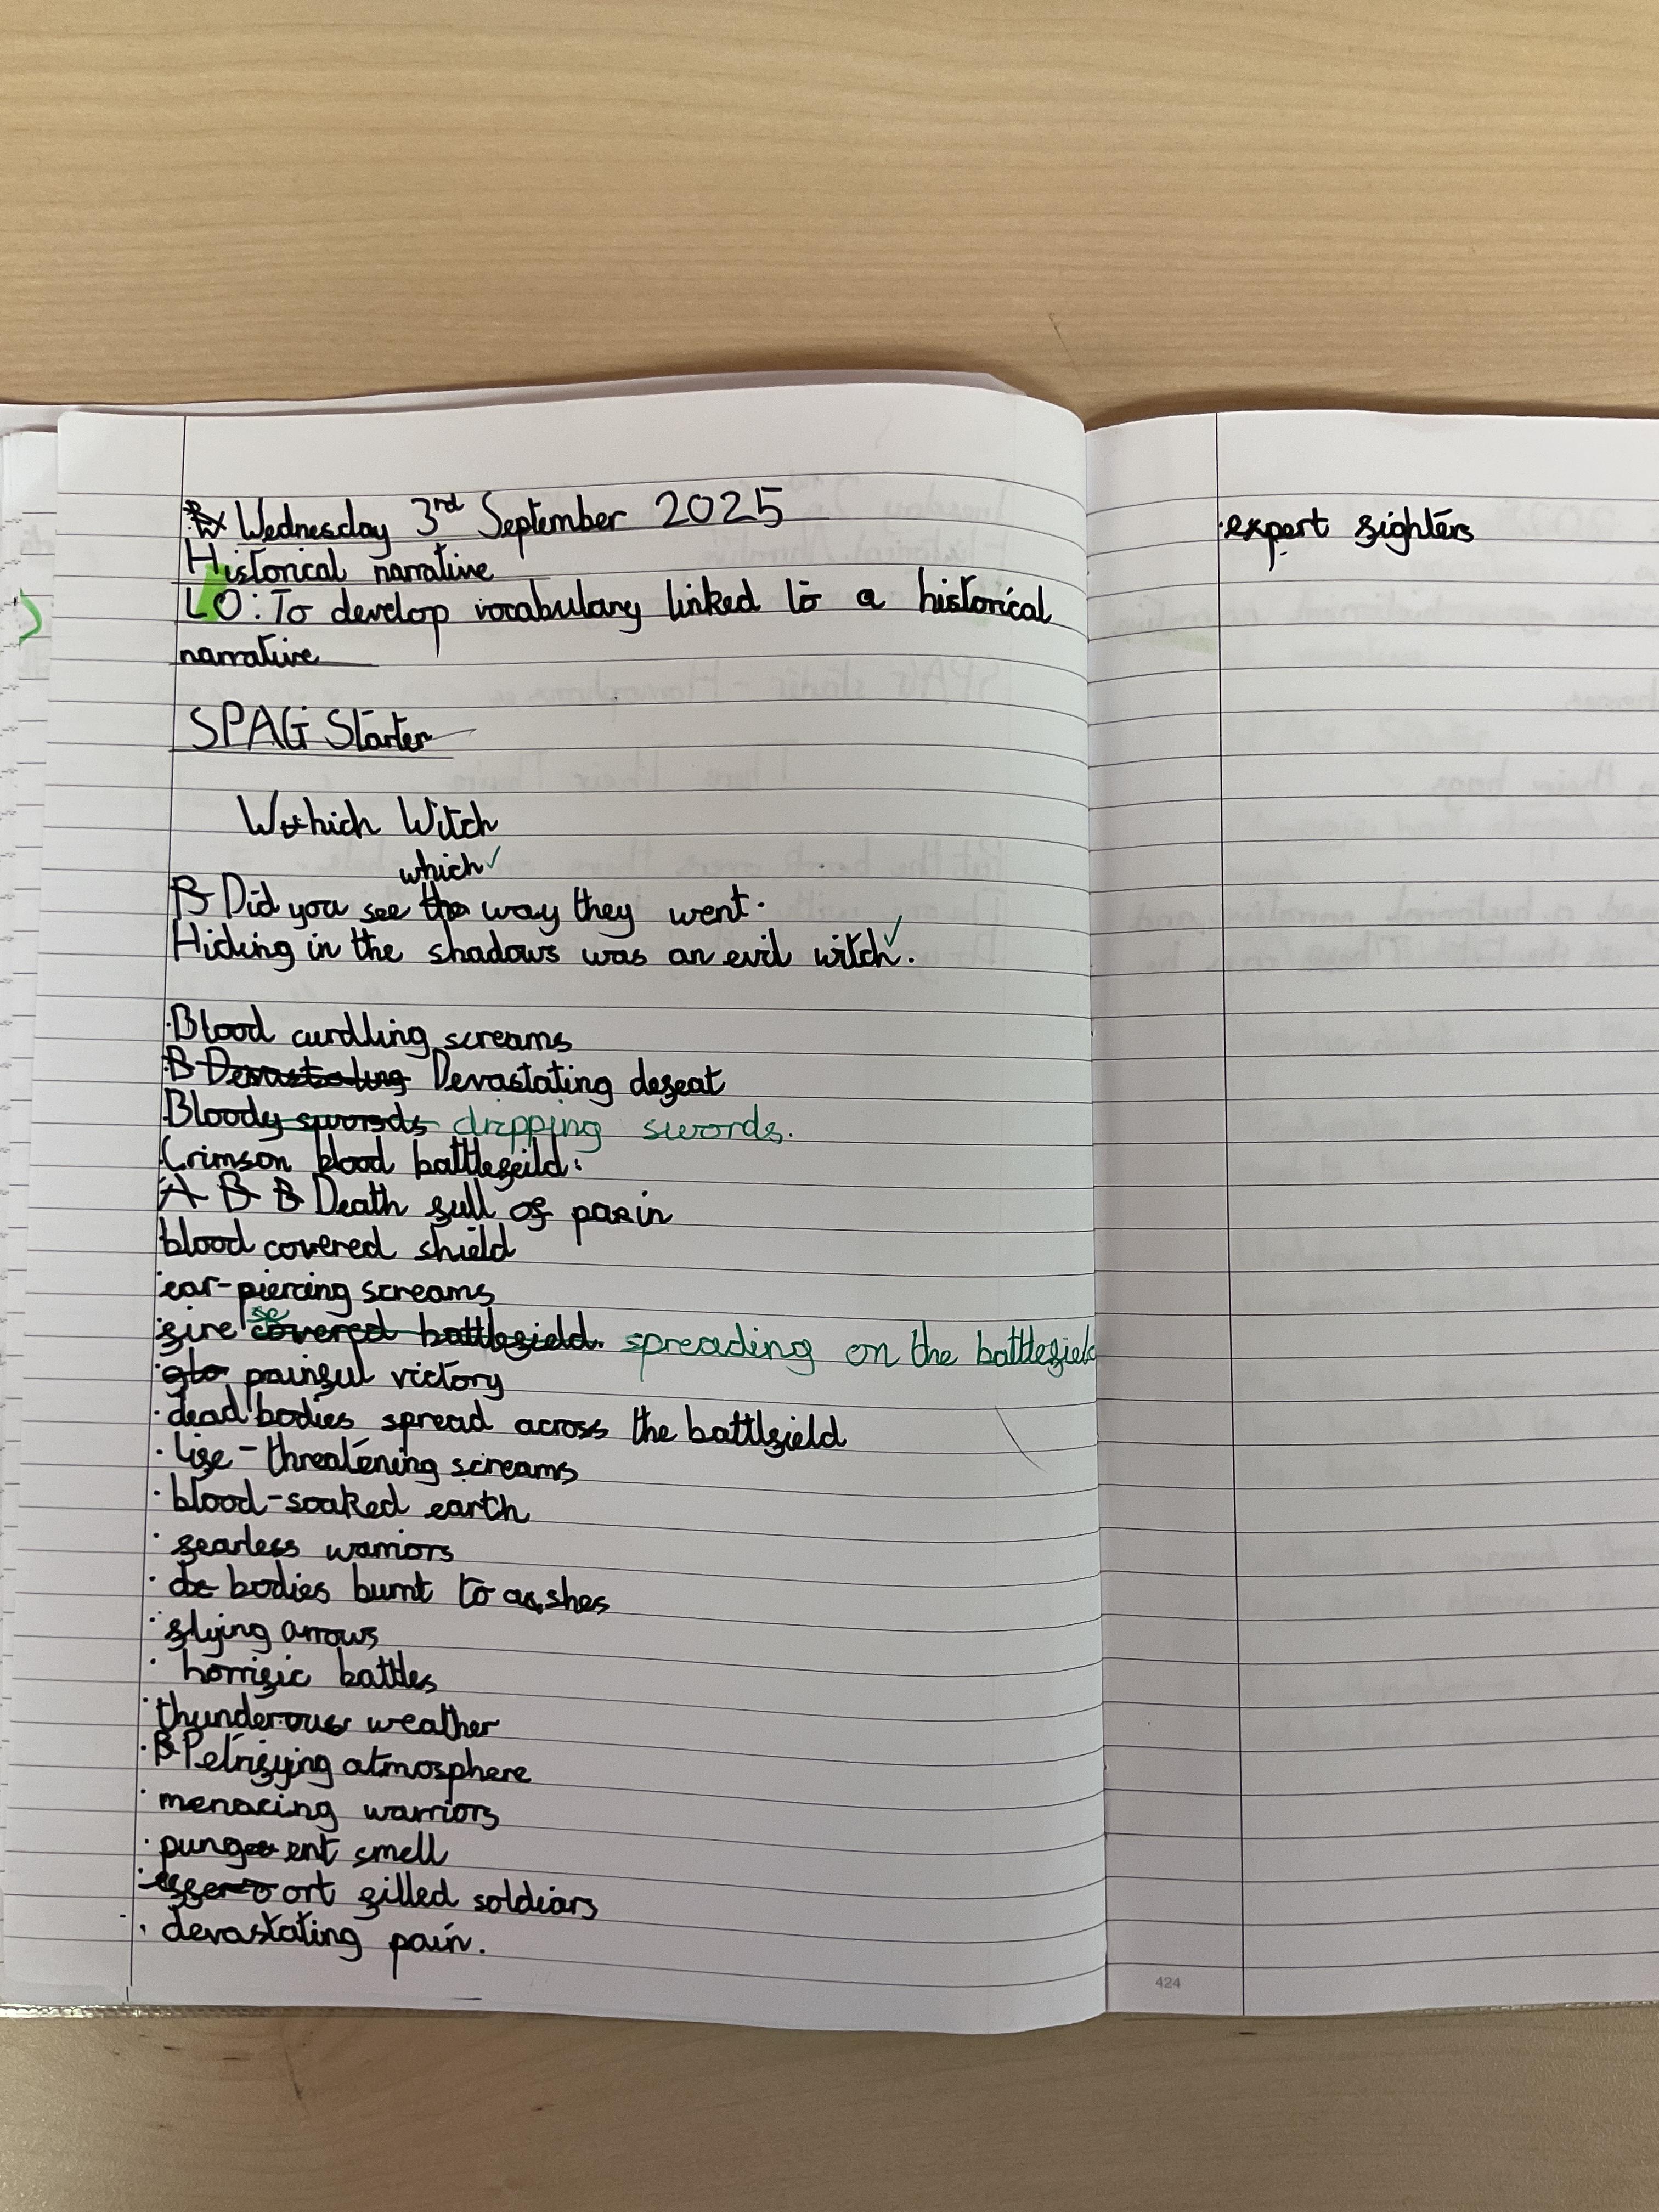 Wednesday 3rd September 2025
Historical narrative
LO: To develop vocabulary linked to a historical
narrative
SPAG Starter
Which Witch
which ✓
Did you see the way they went.
Hiding in the shadows was an evil witch ✓.
·Blood curdling screams
·B Devastating Devastating defeat
·Bloody swords dripping swords.
·Crimson blood battlefeild.
A B B Death full of pain
blood covered shield
·ear-piercing screams
·fire covered battlefield. spreading on the battlefield
·glo painful victory
·dead bodies spread across the battlfield
·life-threatening screams
·blood-soaked earth
·fearless warriors
·de bodies burnt to ashes
·flying arrows
·horrific battles
·thunderous weather
·Petrifying atmosphere
·menacing warriors
·pungent smell
·ort filled soldiars
·devastating pain.
·expert fighters
424